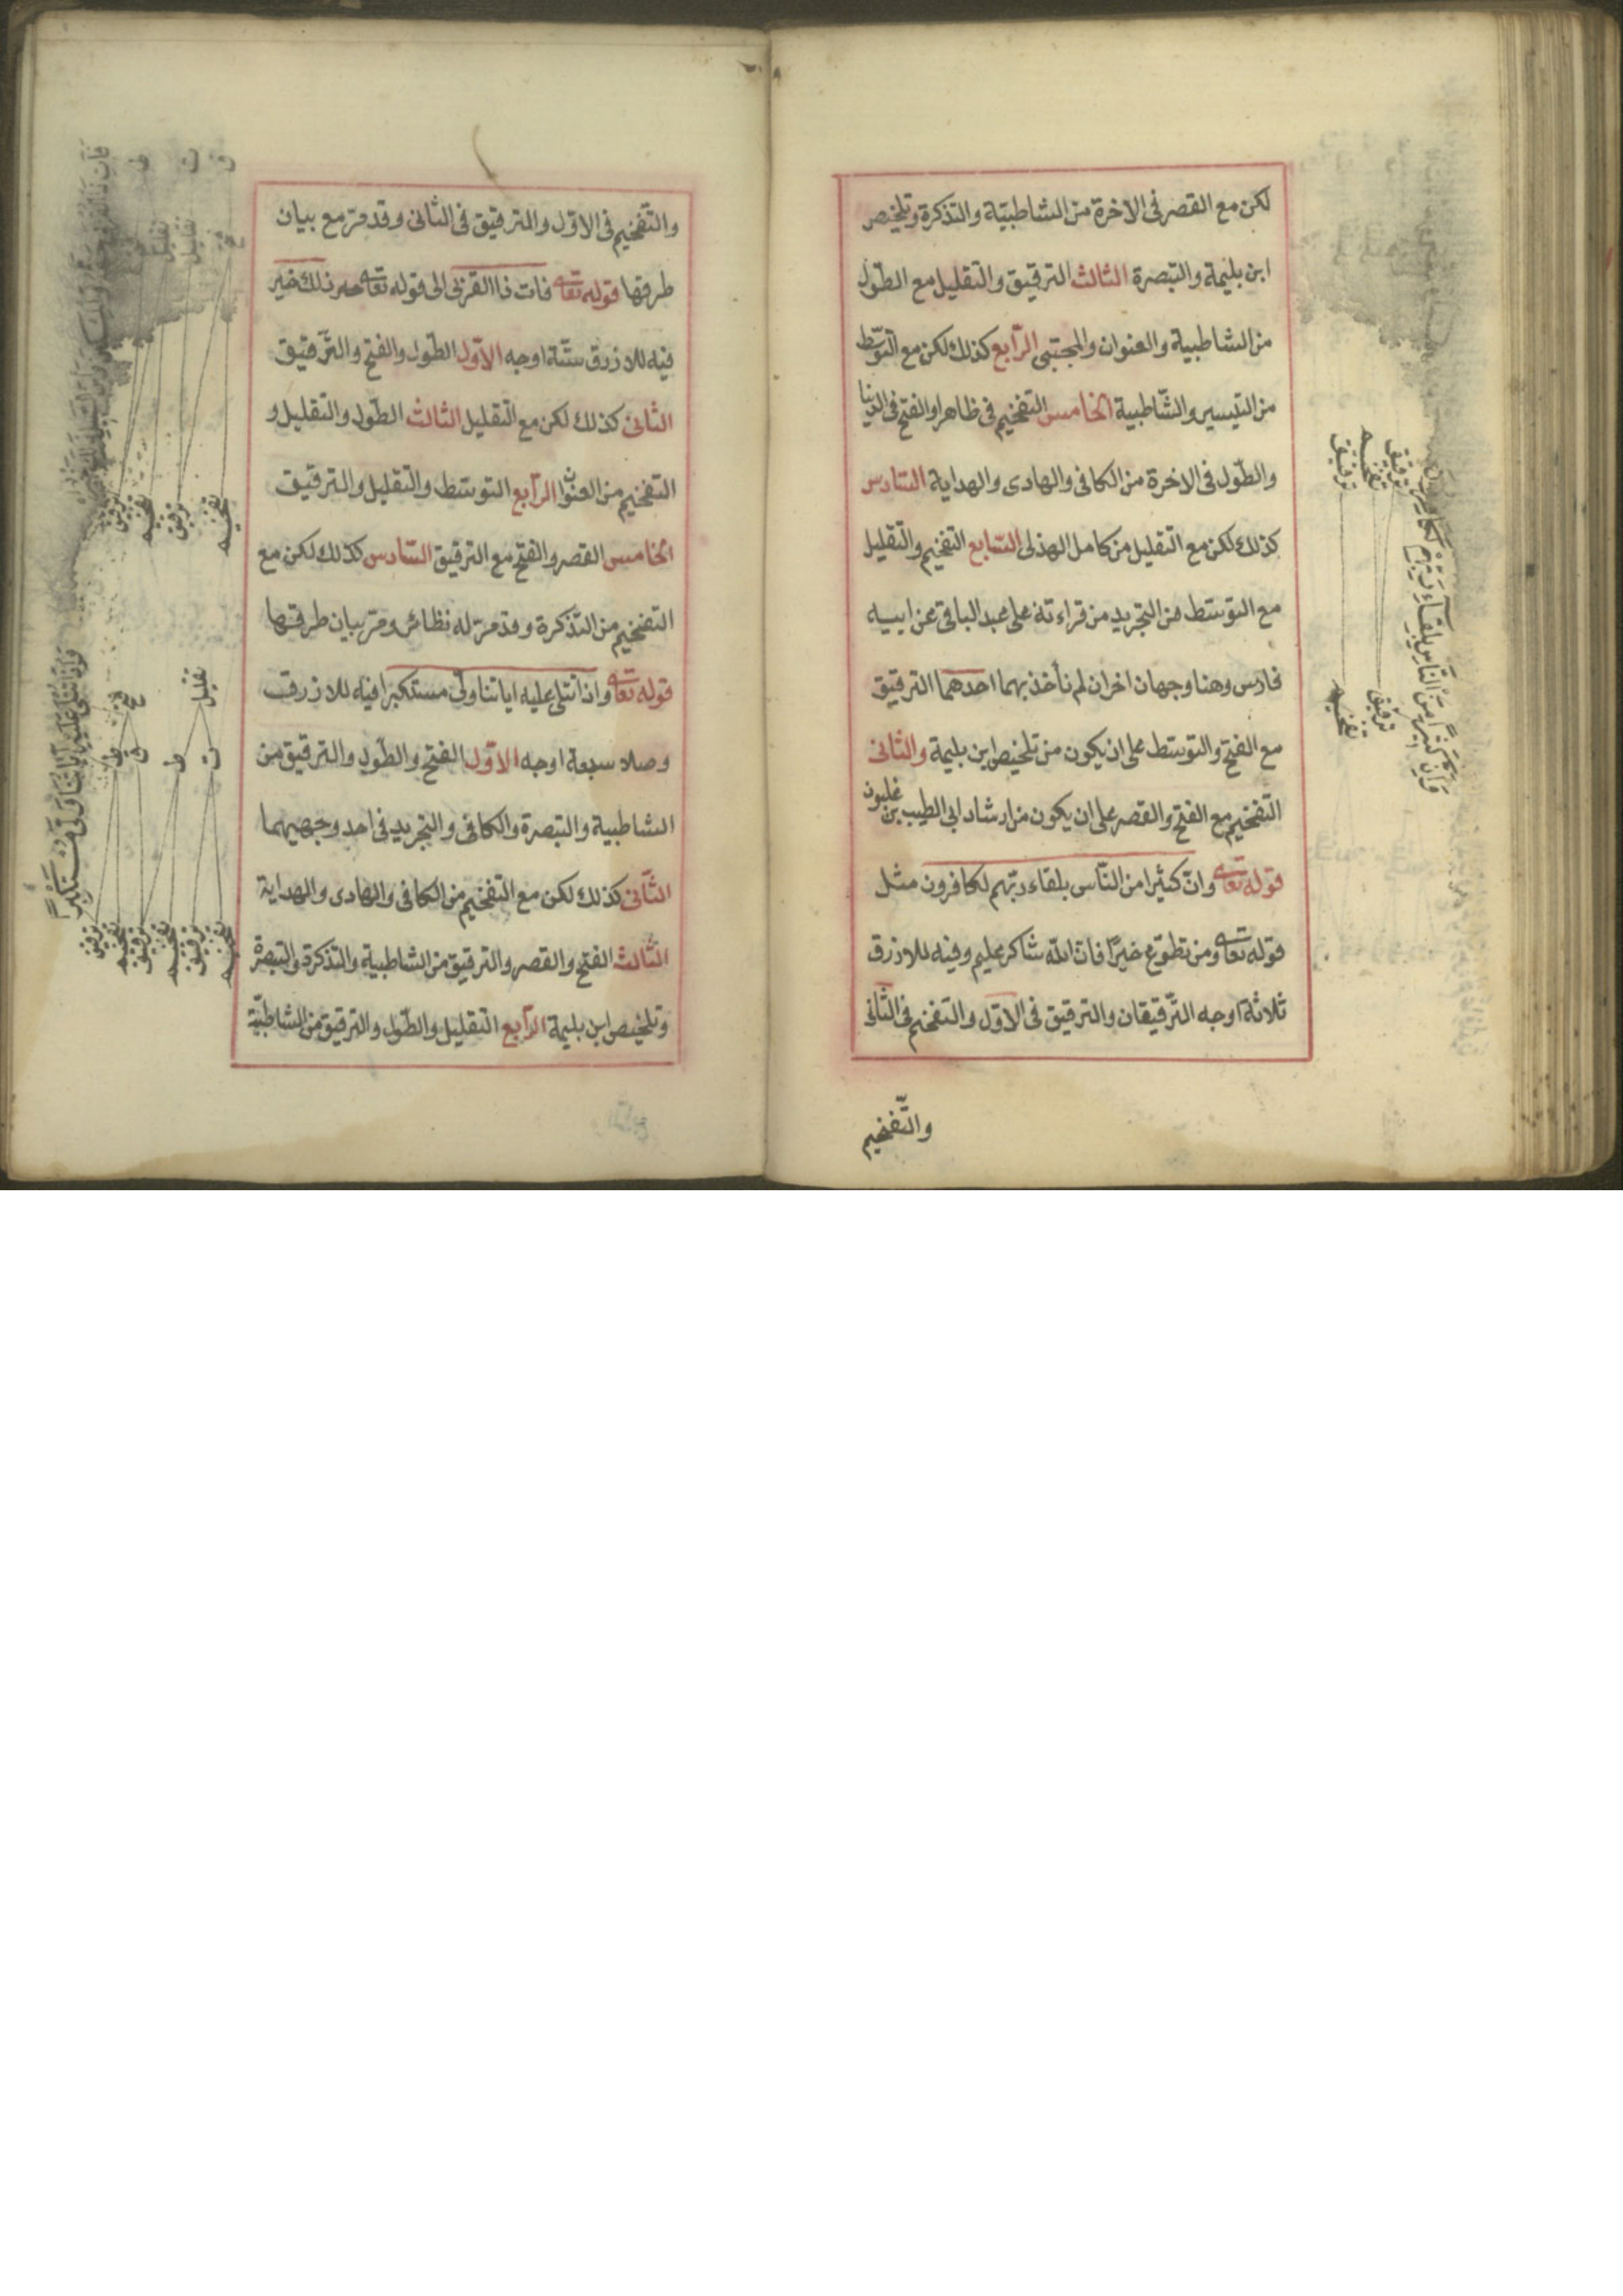 لكن مع القصر فى الاخرة من الشاطبيّة والتذكرة وتلخيص
ابن بليمة والتبصرة الثالث الترقيق والتقليل مع الطّول
من الشاطبية والعنوان والمجتبى الرّابع كذلك لكن مع التوسّط
من التيسير والشّاطبية الخامس التفخيم فى ظاهرا والفتح فى الدنيا
والطّول فى الاخرة من الكافى والهادى والهداية السّادس
كذلك لكن مع التقليل من كامل الهذلى السّابع التفخيم والتقليل
مع التوسّط من التجريد من قراءته على عبد الباقى عن ابيه
فارس وهنا وجهان اخران لم نأخذ بهما احدهما الترقيق
مع الفتح والتوسّط على ان يكون من تلخيص ابن بليمة والثانى
التفخيم مع الفتح والقصر على ان يكون من ارشاد ابى الطيب بن غلبون
قوله تعا وانّ كثيرا من النّاس بلقاء ربّهم لكافرون مثل
قوله تعا ومن تطوّع خيرًا فانّ الله شاكر عليم وفيه للازرق
ثلاثة اوجه التّرقيقان والترقيق فى الاوّل والتفخيم فى الثّانى
والتّفخيم
وانّ كثيرا من النّاس بلقاء ربّهم لكافرون
ترقيق
ترقيق تفخيم
ترقيق
تفخيم
والتّفخيم فى الاوّل والترقيق فى الثانى وقد مرّ مع بيان
طرقها قوله تعا فات ذا القربى الى قوله تعا ذلك خير
فيه للازرق ستّة اوجه الاوّل الطّول والفتح والتّرقيق
الثانى كذلك لكن مع التقليل الثالث الطّول والتقليل و
التفخيم من العنوان الرّابع التوسّط والتقليل والترقيق
الخامس القصر والفتح مع الترقيق السّادس كذلك لكن مع
التفخيم من التذكرة وقد مرّ له نظائر ومرّ بيان طرقها
قوله تعا واذا تتلى عليه اياتنا ولّى مستكبرا فيه للازرق
وصلا سبعة اوجه الاوّل الفتح والطّول والترقيق من
الشاطبية والتبصرة والكافى والتجريد فى احد وجهيهما
الثّانى كذلك لكن مع التفخيم من الكافى والهادى والهداية
الثّالث الفتح والقصر والترقيق من الشاطبية والتذكرة والتبصرة
وتلخيص ابن بليمة الرّابع التقليل والطّول والترقيق من الشاطبيّة
واذا تتلى عليه اياتنا ولّى مستكبرا
تقليل
فتح
ط
ت
ط
ق